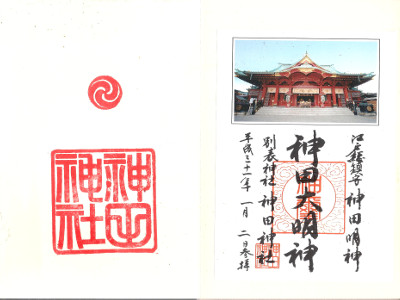 江戸總鎮守 神田明神
神田大明神
別表神社 神田神社
平成三十一年 一月 二日参拝
神田神社